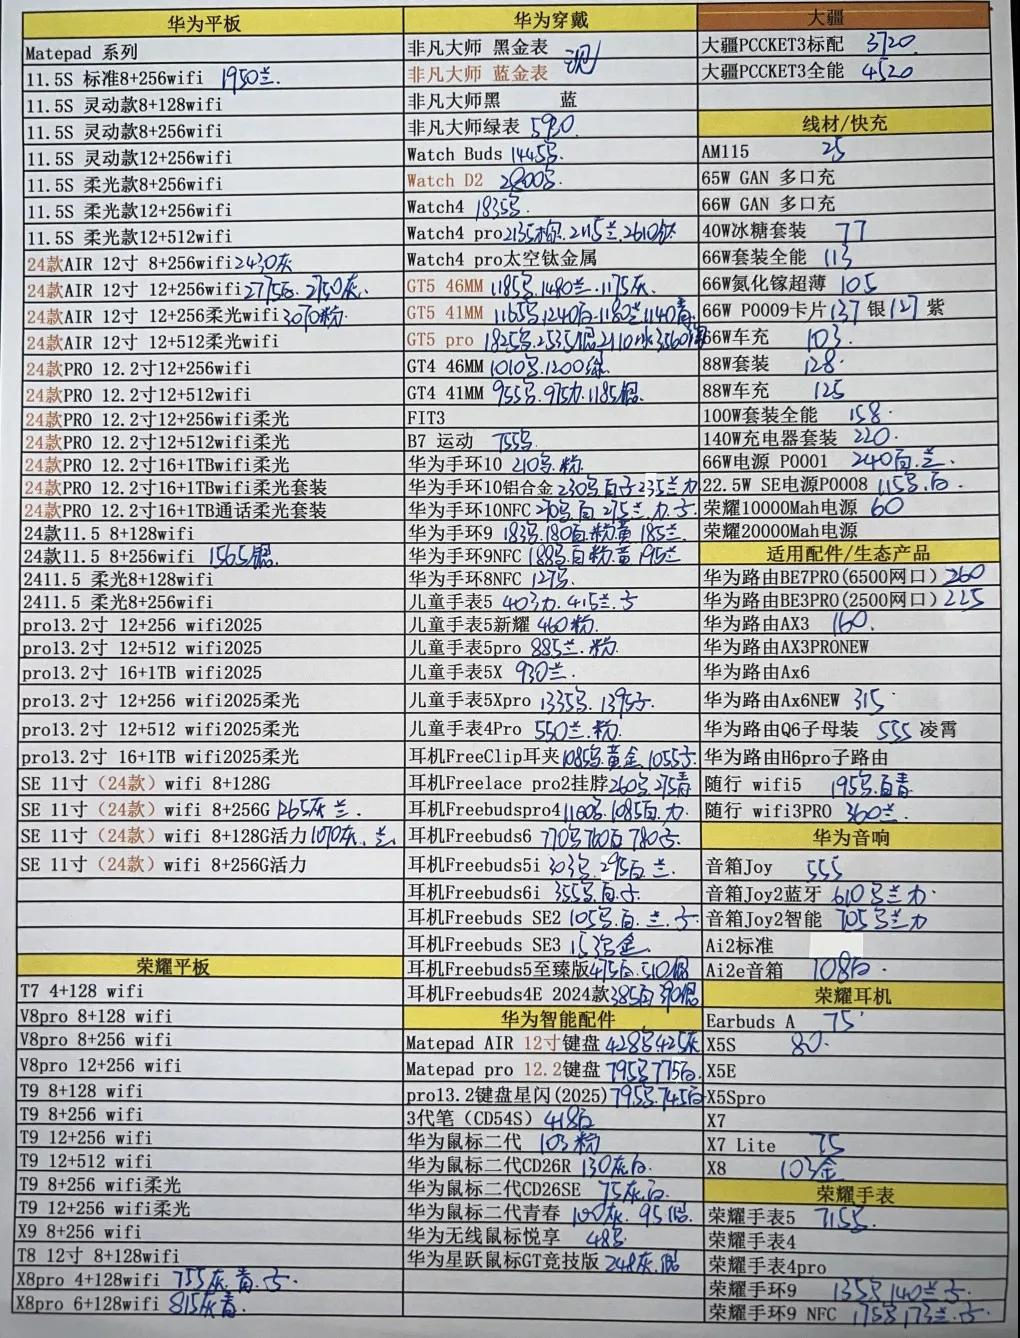 华为平板
Matepad 系列
11.5S 标准8+256wifi 1950兰.
11.5S 灵动款8+128wifi
11.5S 灵动款8+256wifi
11.5S 灵动款12+256wifi
11.5S 柔光款8+256wifi
11.5S 柔光款12+256wifi
11.5S 柔光款12+512wifi
24款AIR 12寸 8+256wifi 2430灰
24款AIR 12寸 12+256wifi 2775白. 2750灰.
24款AIR 12寸 12+256柔光wifi 3070粉.
24款AIR 12寸 12+512柔光wifi
24款PRO 12.2寸12+256wifi
24款PRO 12.2寸12+512wifi
24款PRO 12.2寸12+256wifi柔光
24款PRO 12.2寸12+512wifi柔光
24款PRO 12.2寸16+1TBwifi柔光
24款PRO 12.2寸16+1TBwifi柔光套装
24款PRO 12.2寸16+1TB通话柔光套装
24款11.5 8+128wifi
24款11.5 8+256wifi 1565银.
2411.5 柔光8+128wifi
2411.5 柔光8+256wifi
pro13.2寸 12+256 wifi2025
pro13.2寸 12+512 wifi2025
pro13.2寸 16+1TB wifi2025
pro13.2寸 12+256 wifi2025柔光
pro13.2寸 12+512 wifi2025柔光
pro13.2寸 16+1TB wifi2025柔光
SE 11寸（24款）wifi 8+128G
SE 11寸（24款）wifi 8+256G 1265灰 兰.
SE 11寸（24款）wifi 8+128G活力 1070灰. 兰.
SE 11寸（24款）wifi 8+256G活力
荣耀平板
T7 4+128 wifi
V8pro 8+128 wifi
V8pro 8+256 wifi
V8pro 12+256 wifi
T9 8+128 wifi
T9 8+256 wifi
T9 12+256 wifi
T9 12+512 wifi
T9 8+256 wifi柔光
T9 12+256 wifi柔光
X9 8+256 wifi
T8 12寸 8+128wifi
X8pro 4+128wifi 755灰.青.
X8pro 6+128wifi 815灰青.
华为穿戴
非凡大师 黑金表
非凡大师 蓝金表
非凡大师黑 蓝
非凡大师绿表
Watch Buds 1445
Watch D2
Watch4 1835
Watch4 pro 2135 2115兰. 2610钛
Watch4 pro太空钛金属
GT5 46MM 1185 1480兰. 1175灰.
GT5 41MM 1165 1240白. 1180兰 1140青
GT5 pro 1825
GT4 46MM 1010 1200绿.
GT4 41MM 955 975 1185银.
FIT3
B7 运动 755
华为手环10 210 粉.
华为手环10铝合金 230 235兰
华为手环10NFC 270 白 275兰.
华为手环9 183 180白.粉黄 185兰.
华为手环9NFC 188 白粉.黄 195兰
华为手环8NFC 127
儿童手表5 403 415兰.
儿童手表5新耀 460粉.
儿童手表5pro 885兰.粉.
儿童手表5X 930兰.
儿童手表5Xpro 1335 1395
儿童手表4Pro 550兰.粉.
耳机FreeClip耳夹 1085 黄金. 1055
耳机Freelace pro2挂脖 260 275青
耳机Freebudspro4 1100 1085白.
耳机Freebuds6 770 760白 780
耳机Freebuds5i 303 295白.兰.
耳机Freebuds6i 355 白.
耳机Freebuds SE2 105 白.兰.
耳机Freebuds SE3 153 金.
耳机Freebuds5至臻版 475白. 510银
耳机Freebuds4E 2024款 385白 390银
华为智能配件
Matepad AIR 12寸键盘 428 425灰
Matepad pro 12.2键盘 795 775白.
pro13.2键盘星闪(2025) 795 745白
3代笔（CD54S）418白
华为鼠标二代 103粉
华为鼠标二代CD26R 130灰白.
华为鼠标二代CD26SE 75灰.白.
华为鼠标二代青春 100灰. 95银.
华为无线鼠标悦享 48
华为星跃鼠标GT竞技版 248灰.银
大疆
大疆PCCKET3标配 3720.
大疆PCCKET3全能 4520
线材/快充
AM115 25
65W GAN 多口充
66W GAN 多口充
40W冰糖套装 77
66W套装全能 113
66W氮化镓超薄 105
66W P0009卡片 137 银 127 紫
66W车充 103.
88W套装 128.
88W车充 125
100W套装全能 158.
140W充电器套装 220.
66W电源 P0001 240白.兰.
22.5W SE电源P0008 115 白.
荣耀10000Mah电源 60
荣耀20000Mah电源
适用配件/生态产品
华为路由BE7PRO(6500网口) 260
华为路由BE3PRO(2500网口) 225
华为路由AX3 160.
华为路由AX3PRONEW
华为路由Ax6
华为路由Ax6NEW 315
华为路由Q6子母装 555 凌霄
华为路由H6pro子路由
随行 wifi5 195 白青
随行 wifi3PRO 360兰.
华为音响
音箱Joy 555
音箱Joy2蓝牙 610 兰
音箱Joy2智能 705 兰
Ai2标准
Ai2e音箱 108白.
荣耀耳机
Earbuds A 75
X5S 80.
X5E
X5Spro
X7
X7 Lite 75
X8 103金
荣耀手表
荣耀手表5 715
荣耀手表4
荣耀手表4pro
荣耀手环9 135 140兰
荣耀手环9 NFC 175 173兰.